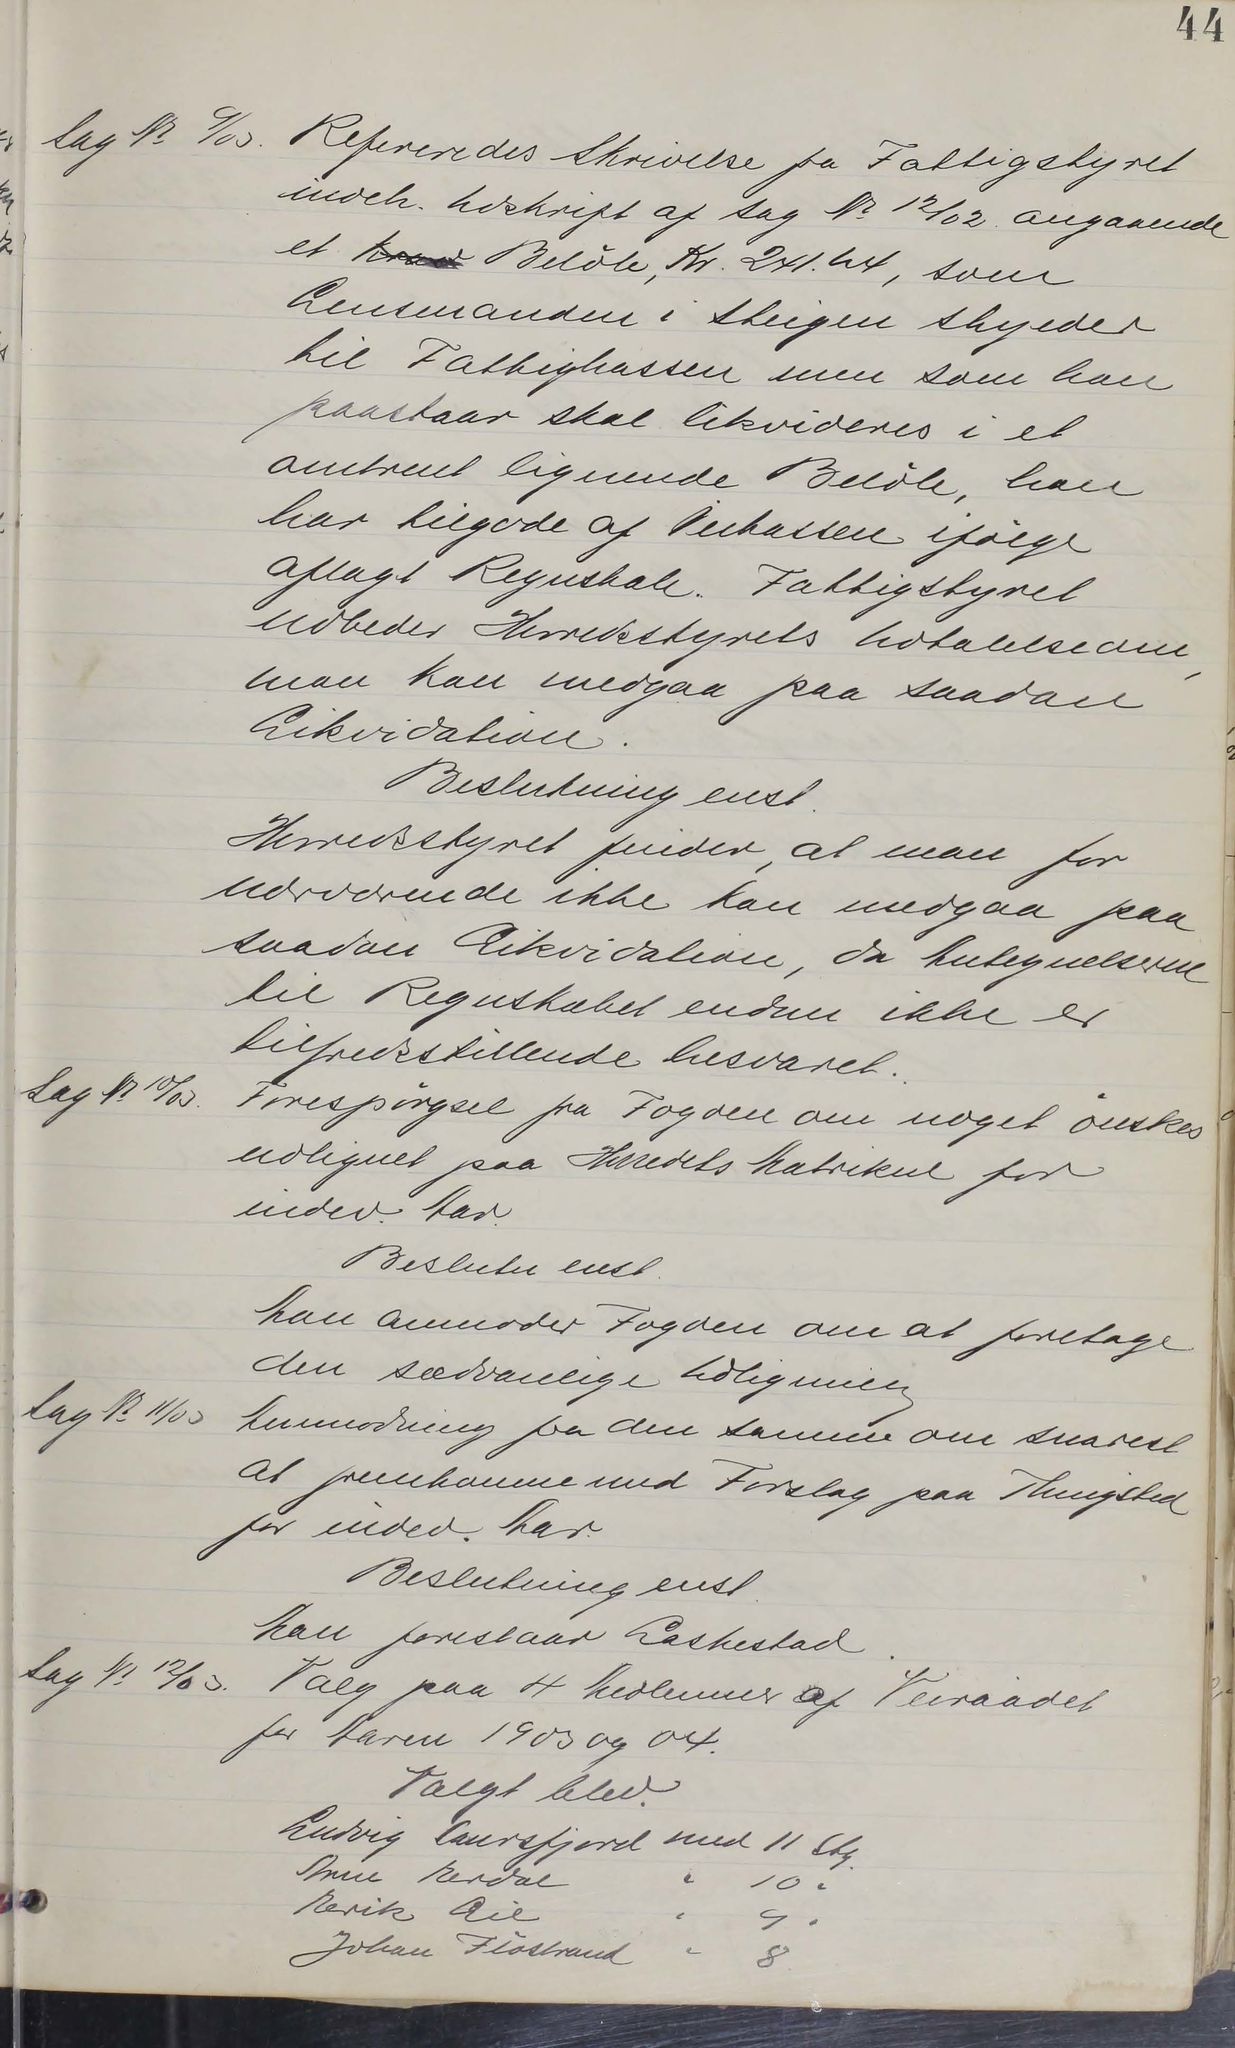 44
Sag № 9/03. Refereredes Skrivelse fra Fattigstyret
indeh. Udskrift af Sag № 12/02 angaaende
et Beløb, Kr. 241.44, som
Lensmanden i Steigen skyeder
til Fattigkassen men som han
paastaar skal likvideres i et
omtrent lignende Beløb, han
har tilgode af Veikassen ifølge
aflagt Regnskab. Fattigstyret
udbeder Herredsstyrets Udtalelse om,
man kan medgaa paa saadan
Likvidation.
Beslutning enst.
Herredsstyret finder, at man for
nærværende ikke kan medgaa paa
saadan Likvidation, da Antegnelserne
til Regnskabet endnu ikke er
tilfredsstillende besvaret.
Sag № 10/03. Forespørgsel fra Fogden om noget ønskes
udlignet paa Herredets Matrikul for
indev. Aar.
Beslutn enst.
Man anmoder Fogden om at foretage
den sædvanlige Udligning
Sag № 11/03 Anmodning fra den samme om snarest
at fremkomme med Forslag paa Thingsted
for indev. Aar.
Beslutning enst.
Man foreslaar Laskestad.
Sag № 12/03. Valg paa 4 Medlemmer af Veiraadet
for Aaren 1903 og 04.
Valgt blev.
Ludvig Saursfjord med 11 Stg.
Arne Nerdal " 10 "
Henrik " 9 "
Johan Flostrand " 8